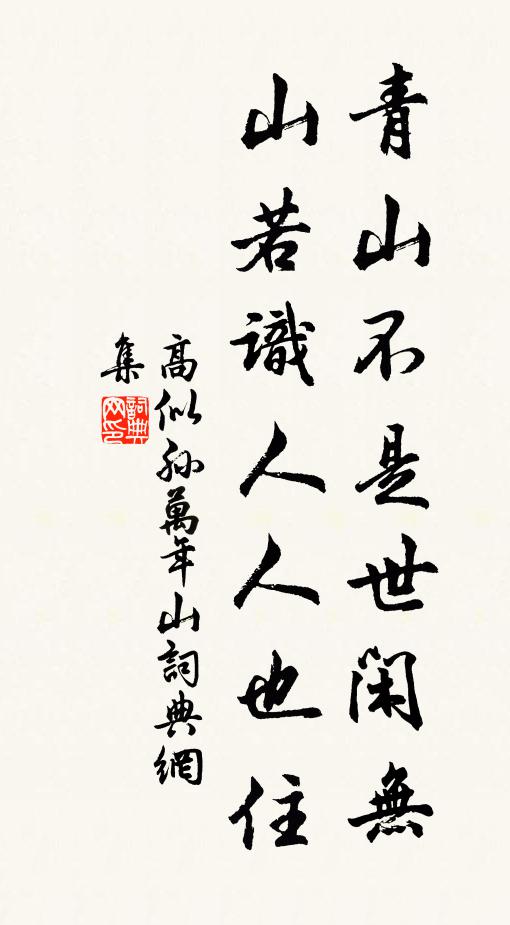 青山不是世閑無
山若識人人也住
高似孫萬年山詞典網
集
詞典网印